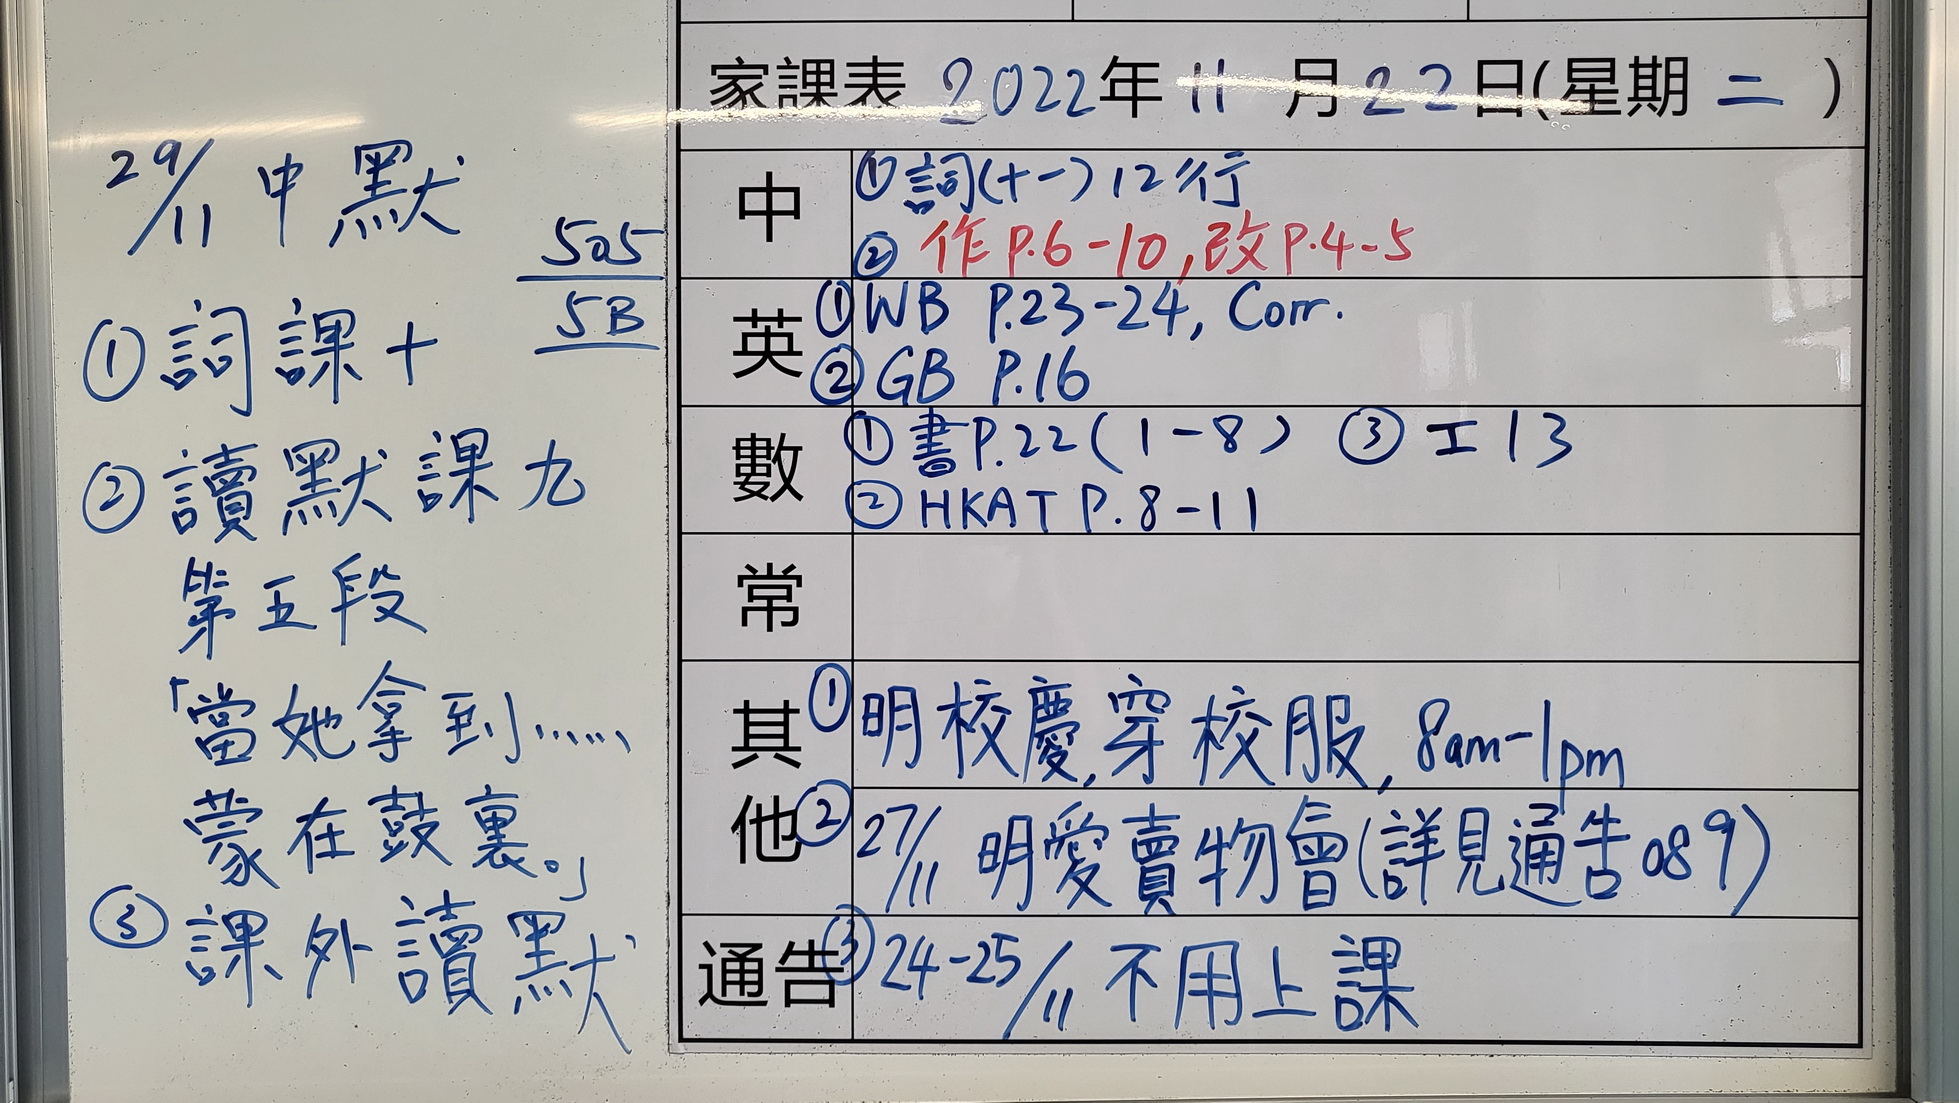 29/11 中默
505
5B
① 詞課十
② 讀默課九
第五段
「當她拿到……
蒙在鼓裏。」
③ 課外讀默
家課表 2022年 11 月 22 日(星期 二 )
中
① 詞(十一) 12行
② 作P.6-10, 改P.4-5
英
① WB P.23-24, Corr.
② GB P.16
數
① 書P.22(1-8) ③ 工13
② HKAT P.8-11
常
其他
① 明校慶, 穿校服, 8am-1pm
② 27/11 明愛賣物會(詳見通告089)
通告
③ 24-25/11 不用上課